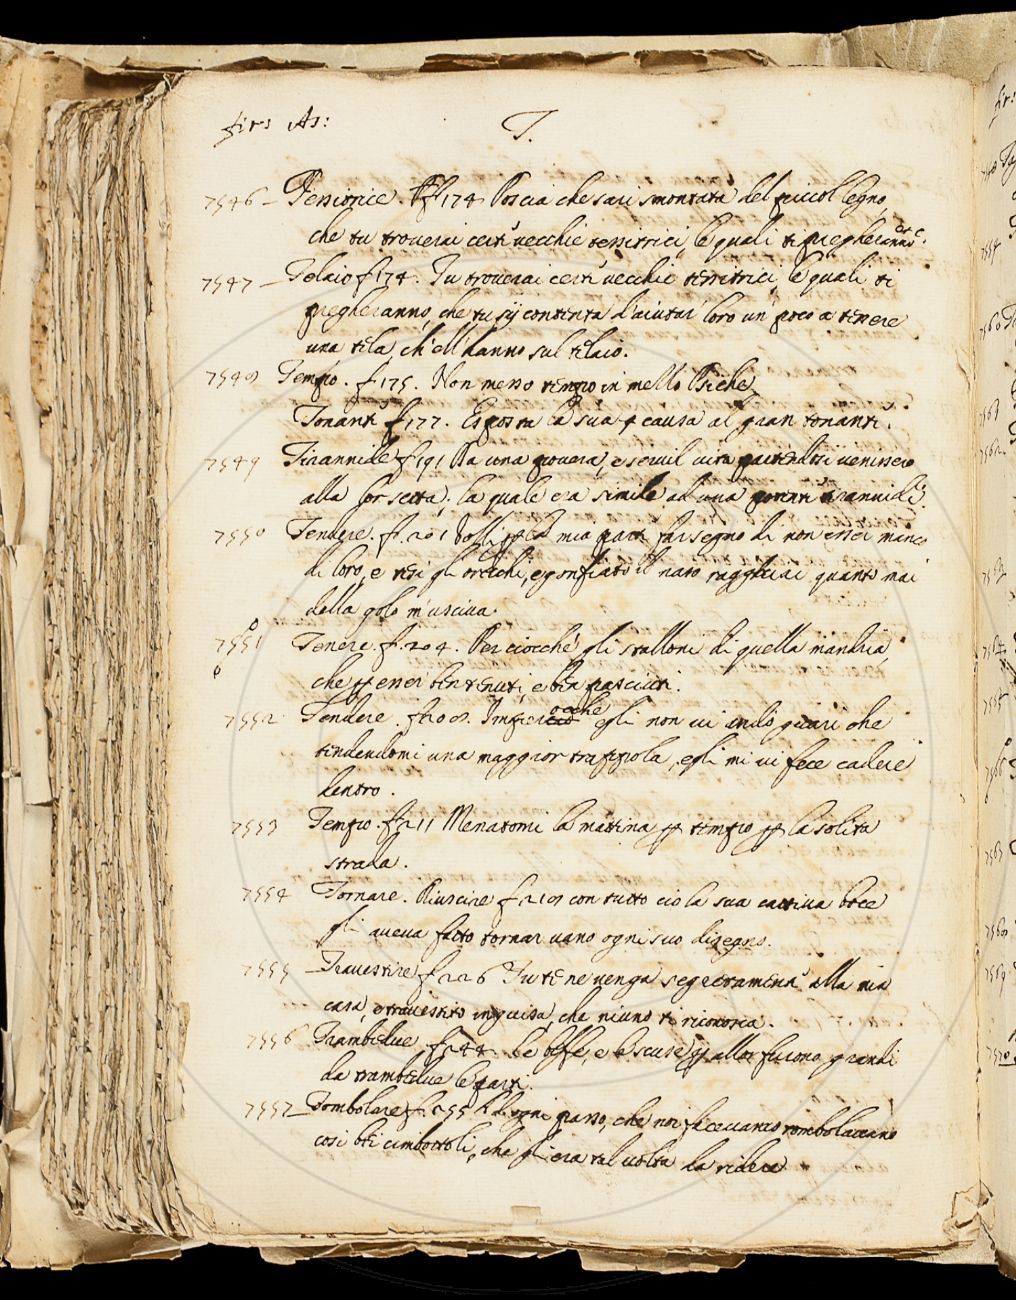 firs As: T.
7546 - Tessitrice. ff 174 Poscia che sarai smontata del piccol legno,
che tu troverai certi vecchie tessitrici, le quali ti pregheranno.
7547 - Telaio f 174. Tu troverai certi vecchie tessitrici, le quali ti
pregheranno, che tu sij contenta d'aiutar loro un poco a tessere
una tela, ch'ell'hanno sul telaio.
7548 Tempio. f 175. Non messo tempio in mello Psiche,
Tonanti f 177. Esposta la sua causa al gran tonanti.
7549 Tirannide f 191 Da una povera, e servil vita partendosi venissero
alla lor setta, la quale era simile ad una potenti tirannide.
7550 Tendere. f. 201 Volli p la mia parti far segno di non esser manco
di loro, e tesi gli orecchi, e gonfiato il naso ragghiai quanto mai
della gola m'usciva.
7551 Tenere. f. 204. Perciocché gli stalloni di quella mandria,
che p esser ben tenuti, e ben pasciuti.
7552 Tendere. f 208. Imperocche egli non vi andò guari che
tendendomi una maggior trappola, egli mi vi fece cadere
dentro.
7553 Tempo. f 211 Menatomi la mattina p tempo p la solita
strada.
7554 Tornare. Riuscire f 218 con tutto ciò la sua cattiva
gli aveva fatto tornar vano ogni suo disegno.
7555 Travestire f 226 Tu te ne venga segretamenti alla mia
casa, e travestito in guisa, che niuno ti riconosca.
7556 Trambedue f 244. Le beffe, e le scuse p allor furono grandi
da trambedue le parti.
7557 Tombolare f. 255 Ad ogni passo, che noi facevamo tombolavamo
così bei cimbottoli, che gli era tal volta da ridere